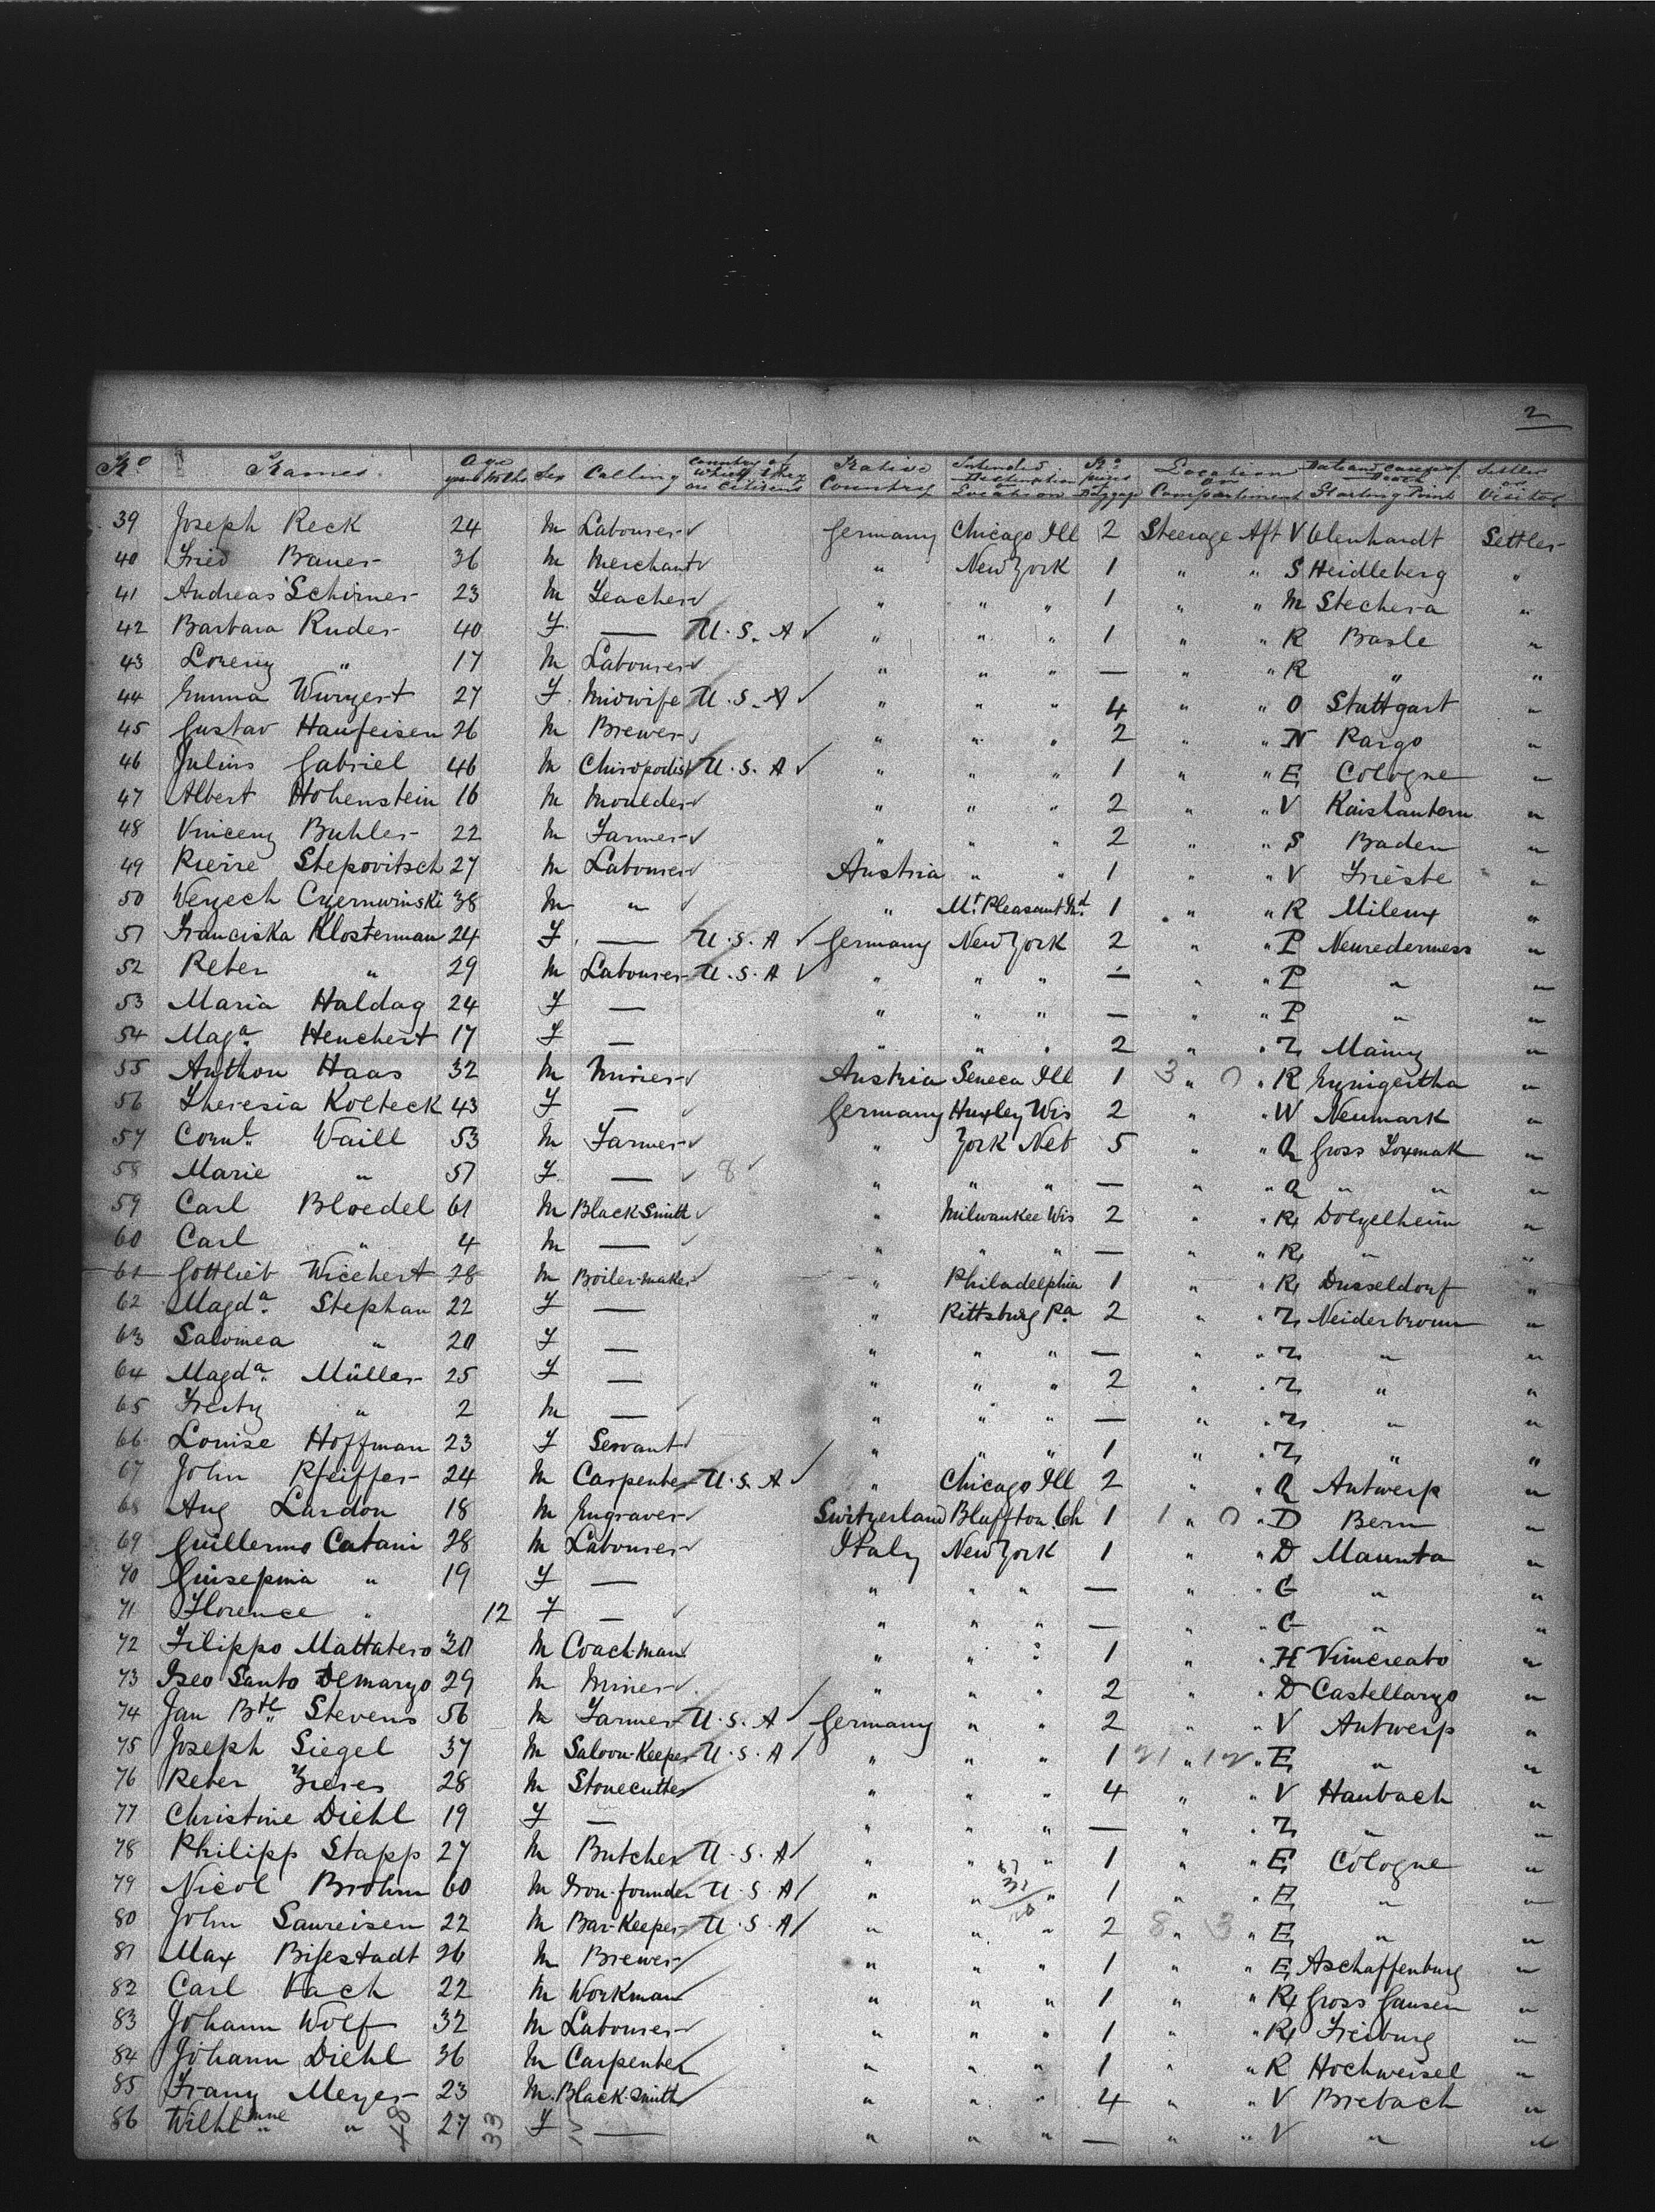 2
No Names Age years Mths Sex Calling Country of which they are Citizens Native Country Intended Destination or Location No pieces of Baggage Location or Compartment Date and Cause of Death Starting Point Settler or Visitor
39 Joseph Reck 24 M Labourer ✓ Germany Chicago Ill 2 Steerage Aft V Settler
40 Fried Bauer 36 M Merchant ✓ " New York 1 " " S Heidleberg "
41 Andreas Schirmer 23 M Teacher ✓ " " " 1 " " M Stechera "
42 Barbara Ruder 40 F — U.S.A ✓ " " " 1 " " R Basle "
43 Lorenz " 17 M Labourer ✓ " " " — " " R " "
44 Emma Wurzert 27 F Midwife U.S.A ✓ " " " 4 " " O Stuttgart "
45 Gustav Haufeisen 26 M Brewer ✓ " " " 2 " " N Pargo "
46 Julius Gabriel 46 M Chiropodist U.S.A ✓ " " " 1 " " E Cologne "
47 Albert Hohenstein 16 M Moulder ✓ " " " 2 " " V Kaishautern "
48 Vincenz Buhler 22 M Farmer ✓ " " " 2 " " S Baden "
49 Pierre Stepovitsch 27 M Labourer ✓ Austria " " 1 " " V Trieste "
50 Wenzech Czernwinski 38 M " ✓ " Mt Pleasant 1 " " R Milenz "
51 Franciska Klosterman 24 F — U.S.A ✓ Germany New York 2 " " P Neuredermess "
52 Peter " 29 M Labourer U.S.A ✓ " " " — " " P " "
53 Maria Haldag 24 F — " " " — " " P " "
54 Maga Henchert 17 F — " " " 2 " " Z Mainz "
55 Anthon Haas 32 M Miner ✓ Austria Seneca Ill 1 3 " 0 " R "
56 Theresia Kolteck 43 F — ✓ Germany Huxley Wis 2 " " W Neumark "
57 Cornl. Waill 53 M Farmer ✓ " York Neb 5 " " Q Gross "
58 Marie " 57 F — ✓ 8 ✓ " " " — " " Q " " "
59 Carl Bloedel 61 M Black Smith ✓ " Milwaukee Wis 2 " " R Dolzelheim "
60 Carl " 4 M — ✓ " " " — " " R " "
61 Gottlieb Wiechert 28 M Boiler-maker ✓ " Philadelphia 1 " " R Dusseldorf "
62 Magda. Stephan 22 F — " Pittsburg Pa 2 " " Z Neiderbronn "
63 Salomea " 20 F — " " " — " " Z " "
64 Magda. Müller 25 F — " " " 2 " " Z " "
65 " 2 M — " " " — " " Z " "
66 Louise Hoffman 23 F Servant ✓ " " " 1 " " Z " "
67 John Pfeiffer 24 M Carpenter U.S.A ✓ " Chicago Ill 2 " " Q Antwerp "
68 Aug Lardon 18 M Engraver ✓ Switzerland Bluffton Oh 1 1 " 0 " D Bern "
69 Guillermo Catani 28 M Labourer ✓ Italy New York 1 " " D Maunta "
70 Guisepina " 19 F — " " " — " " G " "
71 Florence " 12 F — ✓ " " " — " " G " "
72 Filippo Mattatero 30 M Coachman " " " 1 " " H Vimcreato "
73 Iseo Santo Demarzo 29 M Miner ✓ " " " 2 " " D Castellarzo "
74 Jan Bte Stevens 56 M Farmer U.S.A ✓ Germany " " 2 " " V Antwerp "
75 Joseph Siegel 37 M Saloon-Keeper U.S.A ✓ " " " 1 21 " 12 " E " "
76 Peter Zieres 28 M Stonecutter ✓ " " " 4 " " V Haubach "
77 Christine Diehl 19 F — " " " — " " Z " "
78 Philipp Stapp 27 M Butcher U.S.A ✓ " " " 1 " " E Cologne "
79 Nicol Brohm 60 M Iron-founder U.S.A ✓ " " " 1 " " E " "
80 John Saureisen 22 M Bar-Keeper U.S.A ✓ " " " 2 8 " 3 " E " "
81 Max Bijestadt 26 M Brewer ✓ " " " 1 " " E Aschaffenburg "
82 Carl Vach 22 M Workman ✓ " " " 1 " " R Gross Gausen "
83 Johann Wolf 32 M Labourer ✓ " " " 1 " " R Freiburg "
84 Johann Diehl 36 M Carpenter ✓ " " " 1 " " R Hochweisel "
85 Franz Meyer 23 M. Black-smith ✓ " " " 4 " " V Brebach "
86 Wilhlmne " 27 F — " " " — " " V " "
48 33